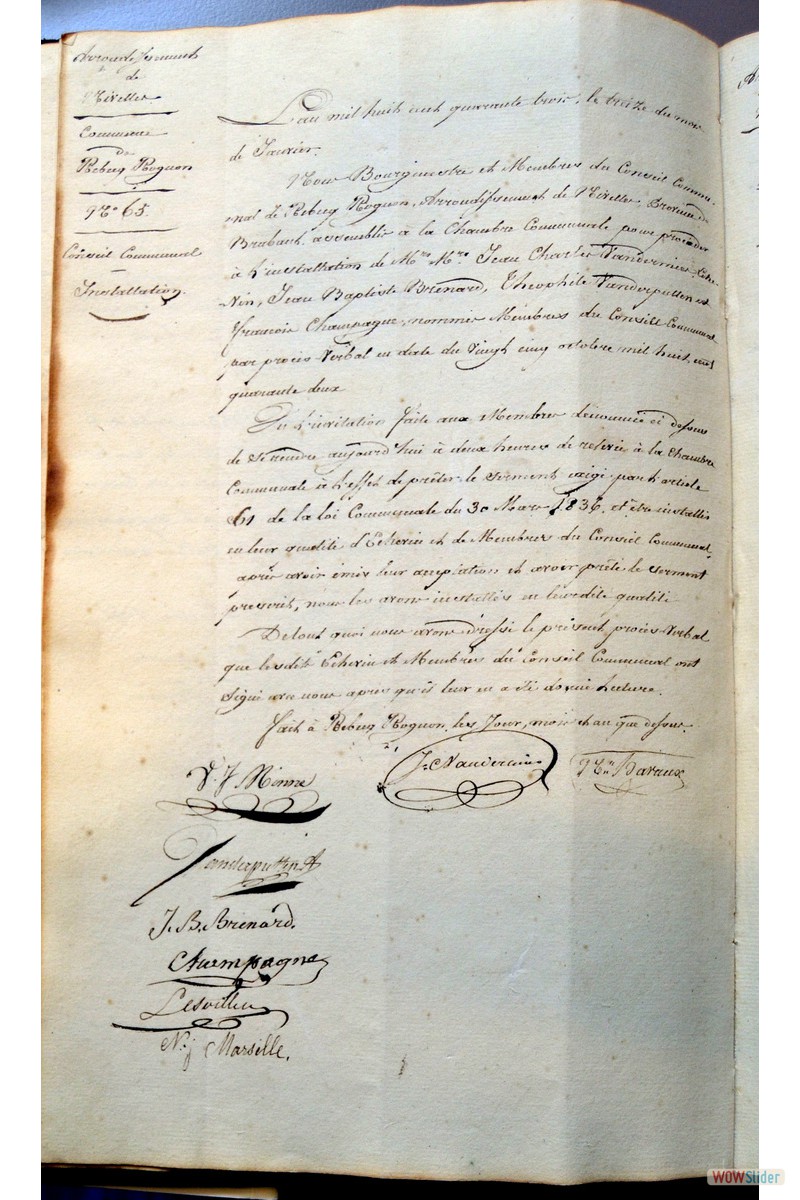 Arrondissement
de
Nivelles
Commune
de
Rebecq Rognon
No 65.
Conseil Communal
Installation.
L'an mil huit cent quarante trois, le treize du mois
de Janvier.
Nous Bourgmestre et Membres du Conseil Commu-
nal de Rebecq Rognon, Arrondissement de Nivelles Province de
Brabant, assemblés à la Chambre Communale pour procéder
à l'installation de Mrs Mrs Jean Charles Vandernies Eche-
vin, Jean Baptiste Brenard, Théophile Vanderputten et
François Champagne, nommés Membres du Conseil Communal
par procès Verbal en date du Vingt cinq octobre mil huit cent
quarante deux
Vu l'invitation faite aux Membres dénommés ci dessus
de se rendre aujourd'hui à deux heures de relevée à la Chambre
Communale à l'effet de prêter le serment exigé par l'article
61 de la loi Communale du 30 Mars 1836, et être installés
en leur qualité d'Echevin et de Membres du Conseil Communal,
après avoir émis leur acceptation et avoir prêté le serment
prescrit, nous les avons installés en leur dite qualité
De tout quoi nous avons dressé le présent procès Verbal
que lesdits Echevin et Membres du Conseil Communal ont
signé avec nous après qu'il leur en a été donné lecture.
fait à Rebecq Rognon, les Jour, mois et an que dessus.
J. C Vandernies
Havaux
V. J Minne
Vanderputten
J. B. Brenard.
Champagne
N. j Marsille.
WOWSlider